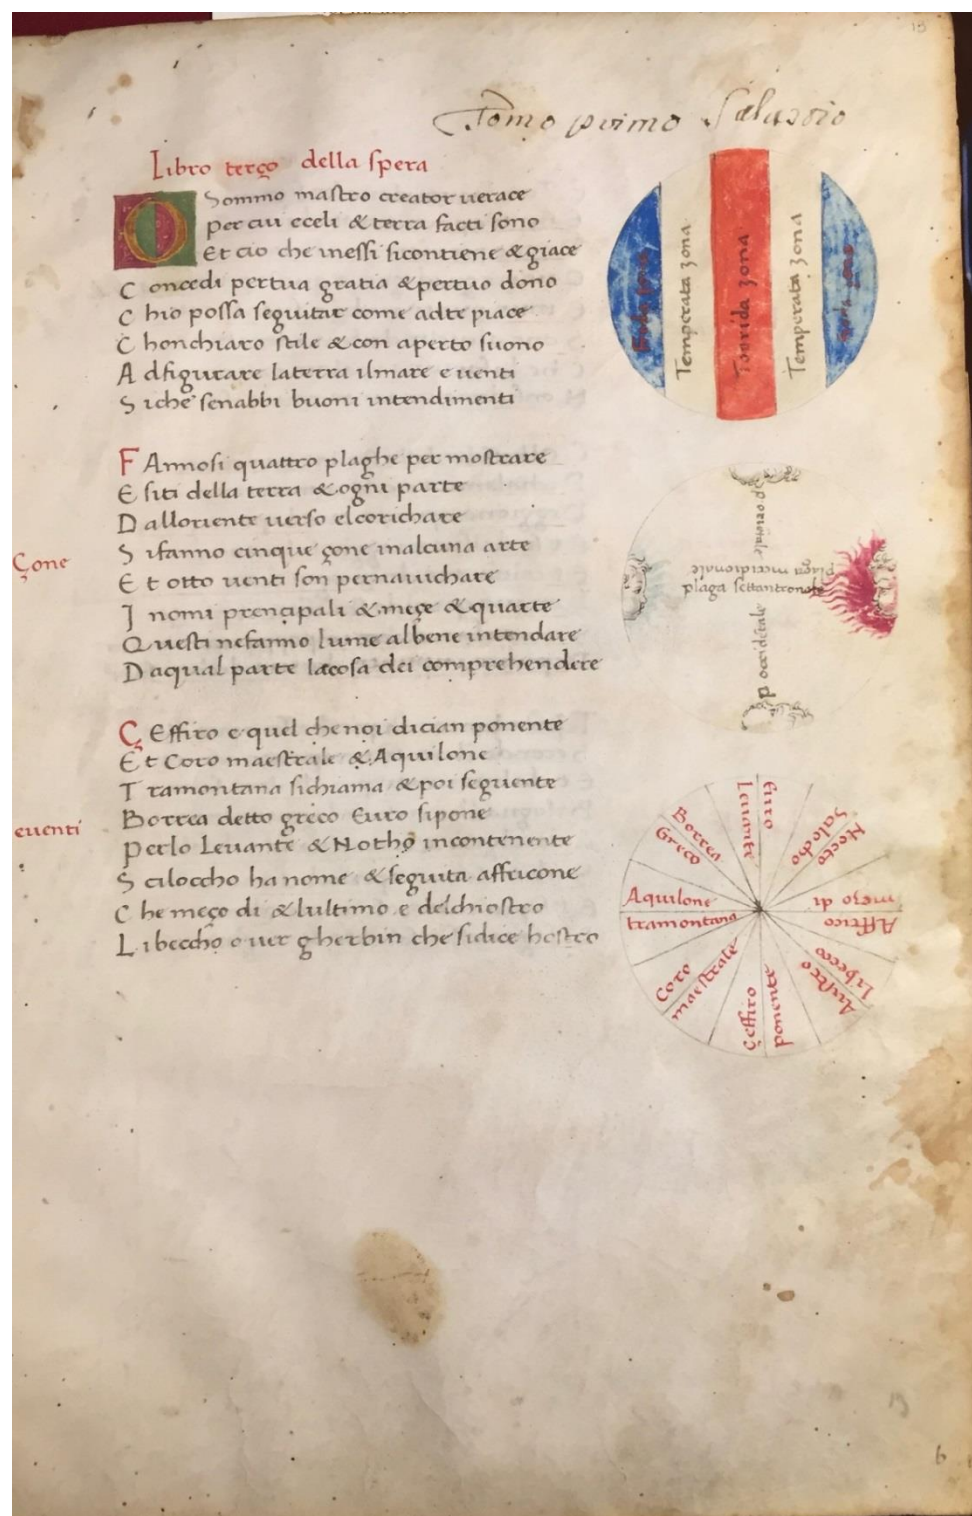 13
Tomo primo
Libro terço della spera
O Sommo mastro creator uerace
per cui eceli & terra facti sono
Et cio che inessi sicontiene & giace
C oncedi pertua gratia & pertuo dono
C hio possa seguitar come adte piace
C honchiaro stile & con aperto suono
A dfigurare laterra ilmare e uenti
S iche senabbi buoni intendimenti
F Annosi quattro plaghe per mostrare
E siti della terra & ogni parte
D alloriente uerso elcorichare
S ifanno cinque çone inalcuna arte
E t otto uenti son pernauichare
I nomi prençipali & meçe & quarte
Q uesti nefanno lume albene intendare
D aqual parte lacosa dei comprehendere
Ç Effiro e quel che noi dician ponente
E t Coro maestrale & Aquilone
T ramontana sichiama & poi seguente
B orrea detto greco Euro sipone
P erlo Leuante & Notho incontenente
S ciloccho ha nome & seguita affricone
C he meço di & lultimo e delchiostro
L ibeccho o uer gherbin che sidice hostro
Çone
euenti
Temperata zona
Torrida zona
Temperata zona
plaga meridionale
plaga settantrionale
p occidētale
Euro
Leuante
Borrea
Greco
Aquilone
tramontana
Coro
maestrale
Çeffiro
ponente
Austro
Libecco
Affrico
mezo di
Nocto
Salocho
6